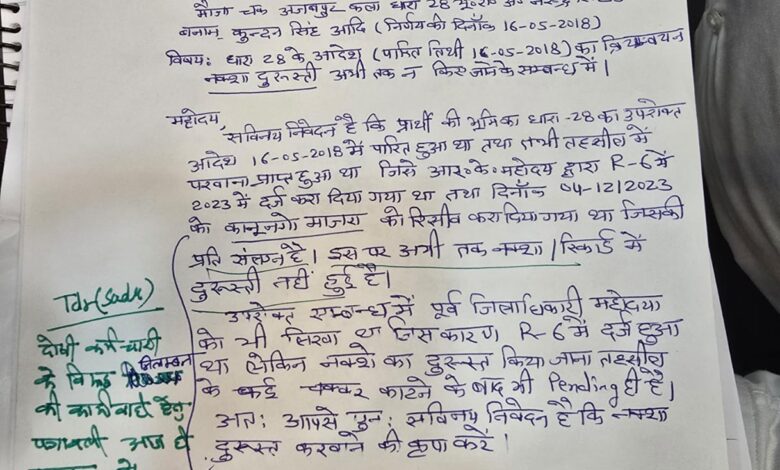 मौजा चक अजबपुर कला धारा 28 भू०रा०
बनाम, कुन्दन सिंह आदि (निर्णय की दिनाँक 16-05-2018)
विषय: धारा 28 के आदेश (पारित तिथी 16-05-2018) का क्रियान्वयन
नक्शा दुरूस्ती अभी तक न किए जाने के सम्बन्ध में।
महोदय,
सविनय निवेदन है कि प्रार्थी की भूमि का धारा-28 का उपरोक्त
आदेश 16-05-2018 में पारित हुआ था तथा तभी तहसील में
परवाना प्राप्त हुआ था जिसे आर०के० महोदय द्वारा R-6 में
2023 में दर्ज करा दिया गया था तथा दिनाँक 04-12-2023
को कानूनगो माजरा को रिसीव करा दिया गया था जिसकी
प्रति संलग्न है। इस पर अभी तक नक्शा/रिकार्ड में
दुरूस्ती नहीं हुई है।
उपरोक्त सम्बन्ध में पूर्व जिलाधिकारी महोदया
को भी लिखा था जिस कारण R-6 में दर्ज हुआ
था लेकिन नक्शे का दुरूस्त किया जाना तहसील
के कई चक्कर काटने के बाद भी Pending ही है।
अत: आपसे पुन: सविनय निवेदन है कि नक्शा
दुरूस्त करवाने की कृपा करें।
Tdr (Sadr)
दोषी कर्मचारी
के विरूद्ध निलम्बन
की कार्यवाही हेतु
पत्रावली आज ही